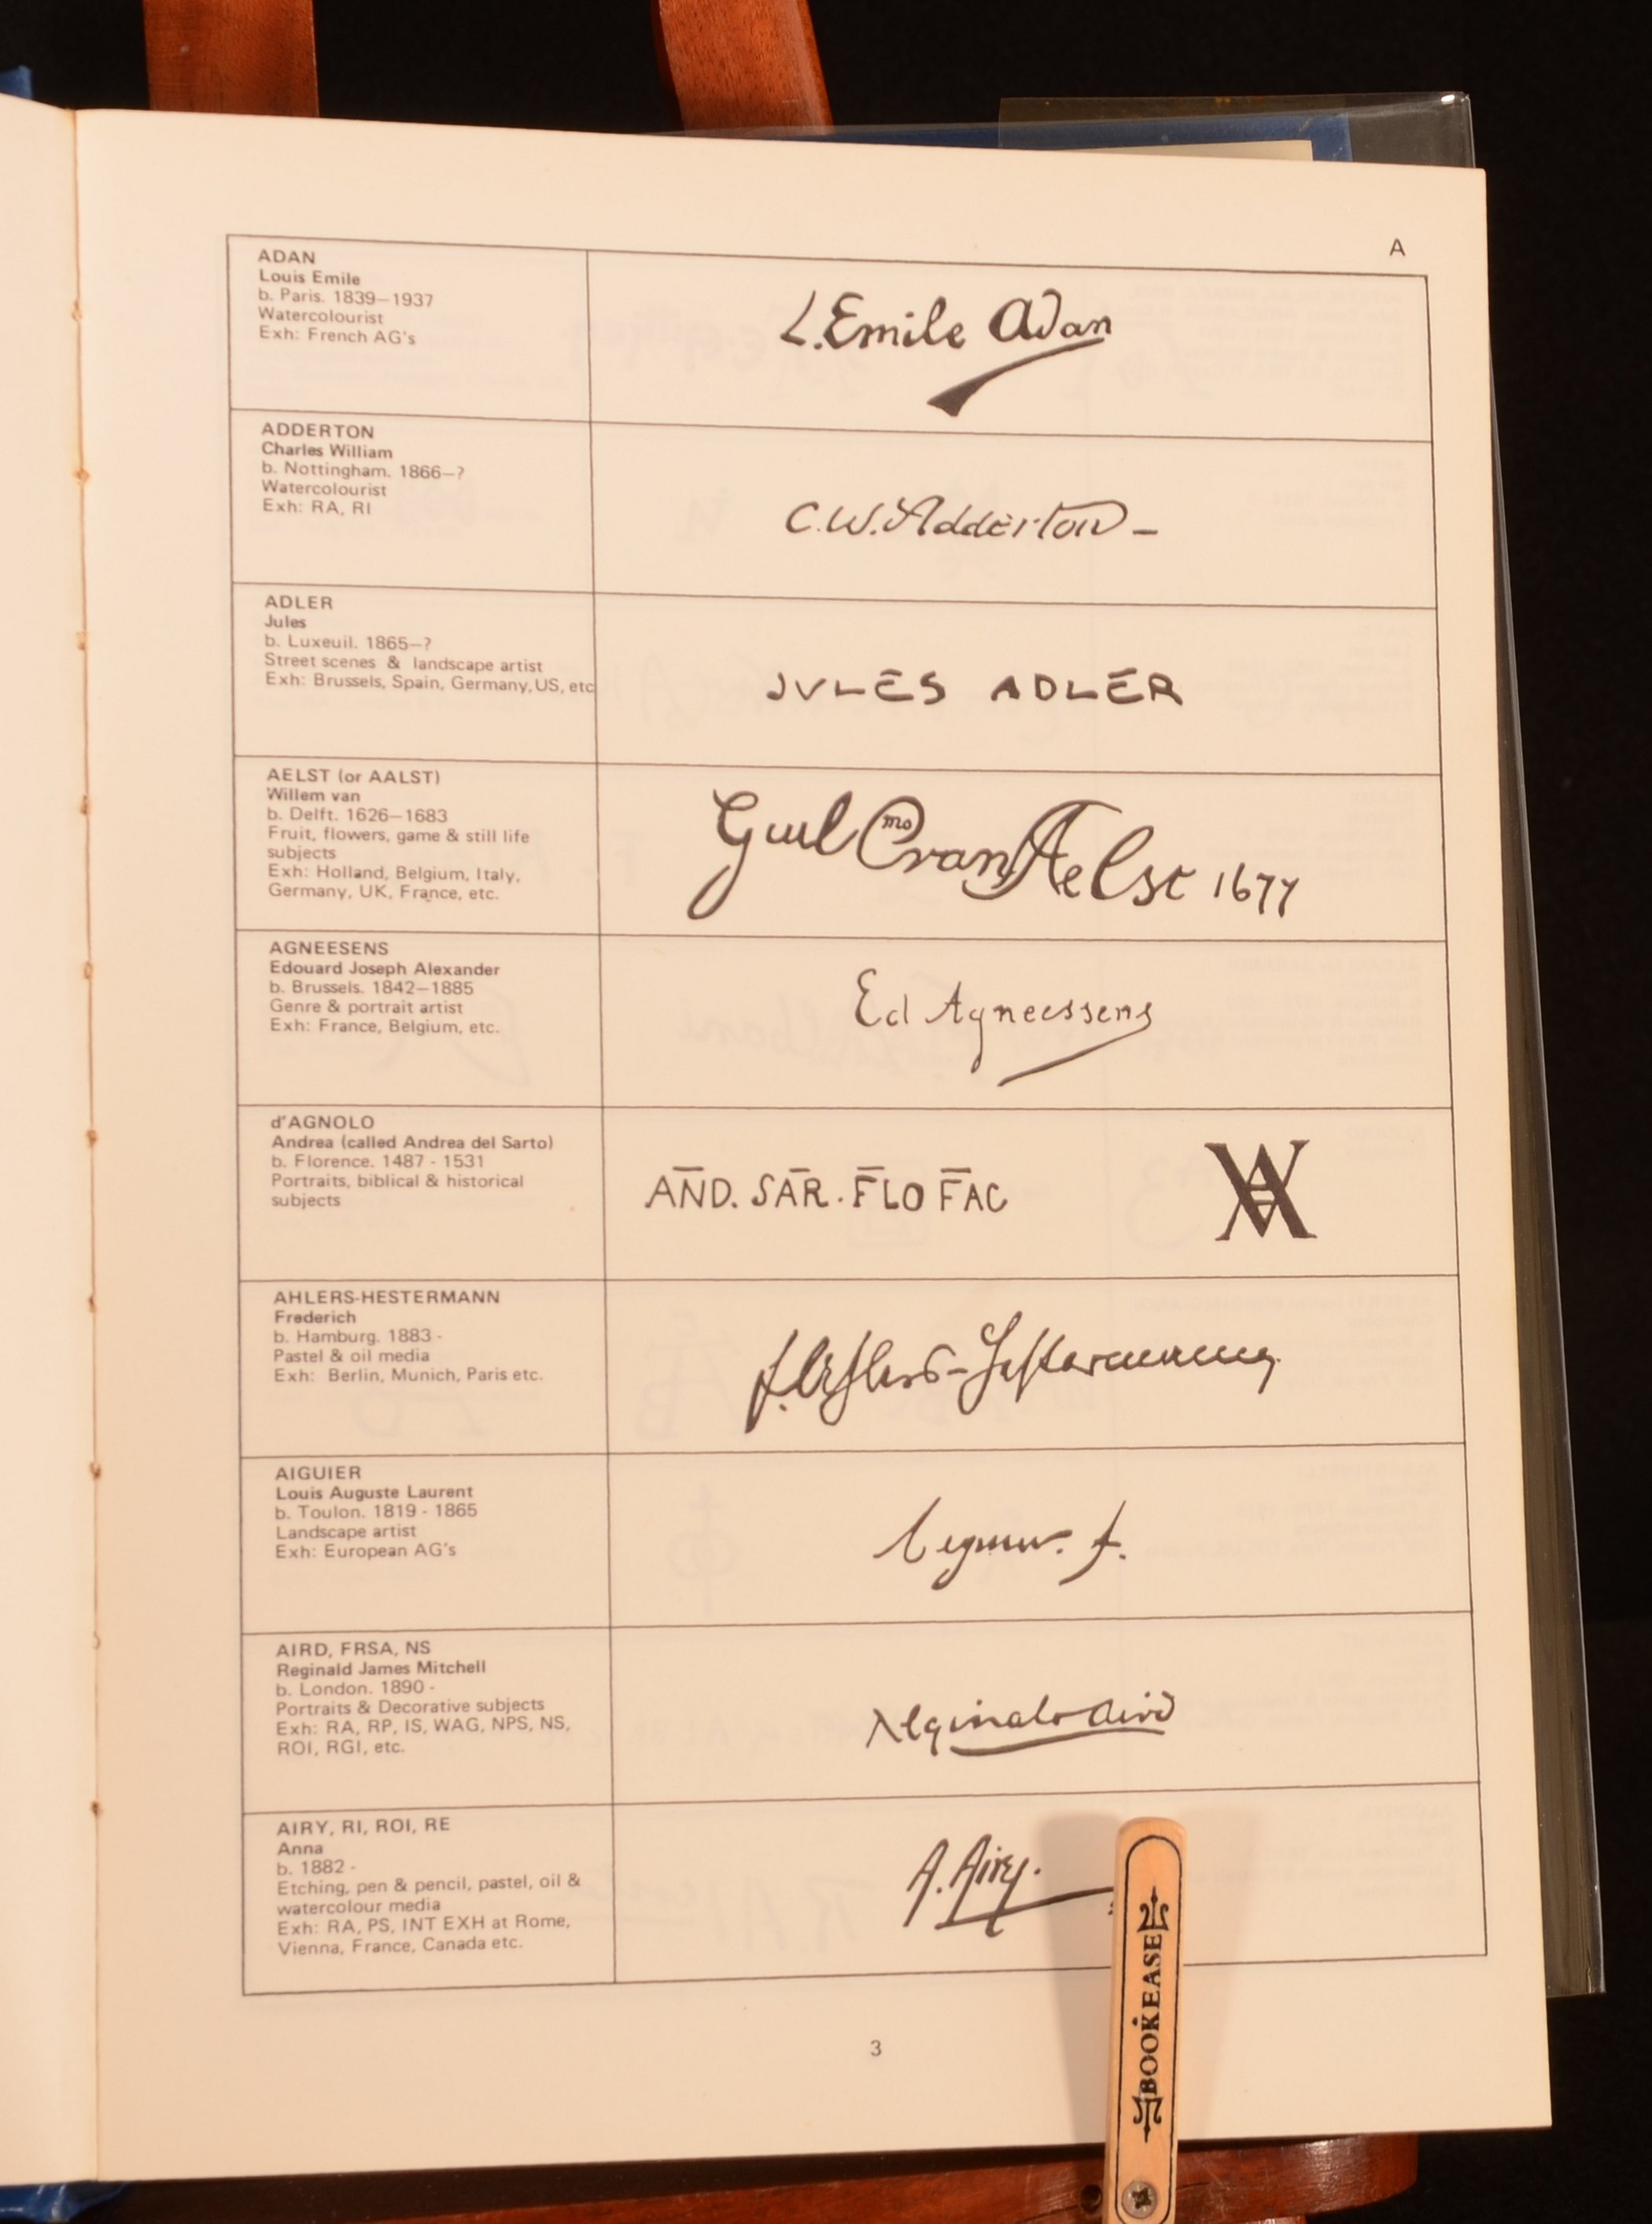 A
ADAN
Louis Emile
b. Paris. 1839–1937
Watercolourist
Exh: French AG's
L. Emile Adan
ADDERTON
Charles William
b. Nottingham. 1866–?
Watercolourist
Exh: RA, RI
C.W. Adderton –
ADLER
Jules
b. Luxeuil. 1865–?
Street scenes & landscape artist
Exh: Brussels, Spain, Germany, US, etc
JVLES ADLER
AELST (or AALST)
Willem van
b. Delft. 1626–1683
Fruit, flowers, game & still life
subjects
Exh: Holland, Belgium, Italy,
Germany, UK, France, etc.
Guil mo van Aelst 1677
AGNEESENS
Edouard Joseph Alexander
b. Brussels. 1842–1885
Genre & portrait artist
Exh: France, Belgium, etc.
Ed Agneessens
d'AGNOLO
Andrea (called Andrea del Sarto)
b. Florence. 1487 - 1531
Portraits, biblical & historical
subjects
AND. SAR. FLO FAC
AHLERS-HESTERMANN
Frederich
b. Hamburg. 1883 -
Pastel & oil media
Exh: Berlin, Munich, Paris etc.
f. Ahlers-Hestermann
AIGUIER
Louis Auguste Laurent
b. Toulon. 1819 - 1865
Landscape artist
Exh: European AG's
AIRD, FRSA, NS
Reginald James Mitchell
b. London. 1890 -
Portraits & Decorative subjects
Exh: RA, RP, IS, WAG, NPS, NS,
ROI, RGI, etc.
Reginald Aird
AIRY, RI, ROI, RE
Anna
b. 1882 -
Etching, pen & pencil, pastel, oil &
watercolour media
Exh: RA, PS, INT EXH at Rome,
Vienna, France, Canada etc.
A. Airy.
3
BOOKEASE